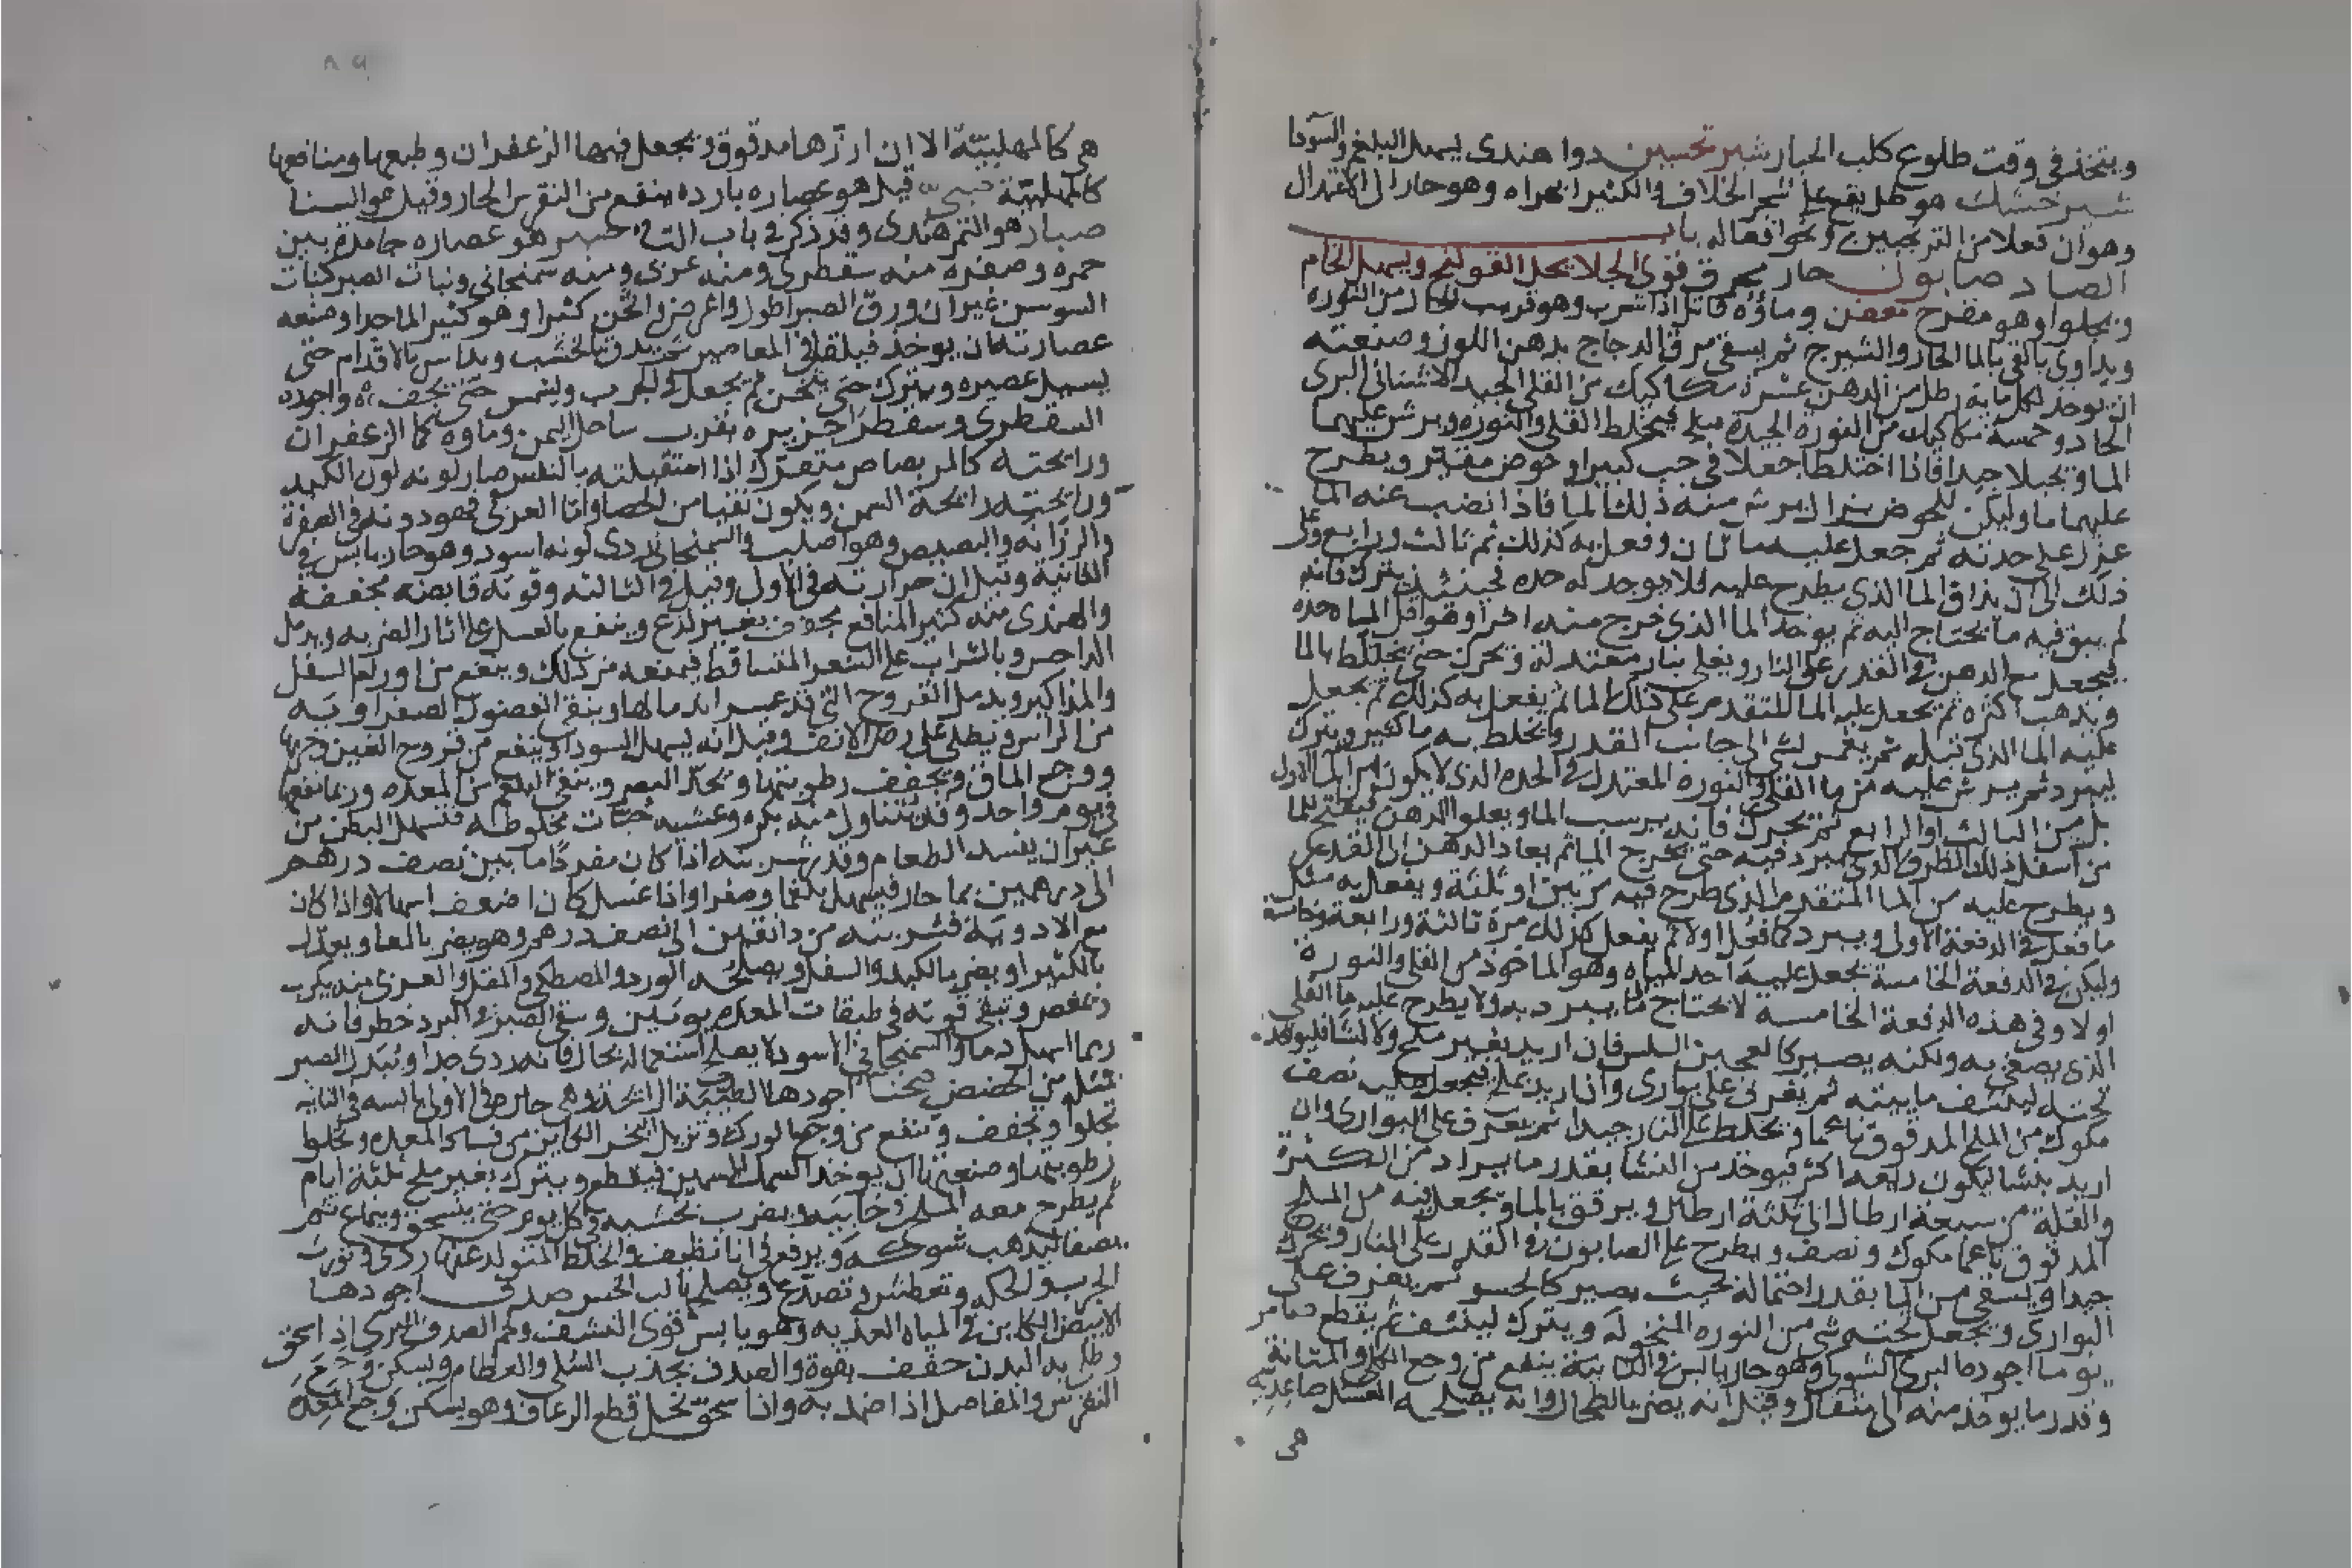 ويتخذ في وقت طلوع كلب الجبار شير تحسين دوا هندى يسهل البلغم والسودا
شير خشك هو طل يقع على شجر الخلاف والكثيرا بهراه وهو حار الى الاعتدال
وهو ان فعلا من الترنجبين ونحو افعاله باب
الصاد صابون حار محرق قوى الجلا يحل القولنج ويسهل الخام
ويجلوا وهو مقرح معفن وماؤه قاتل اذا شرب وهو قريب الحال من النوره
ويداوى بالقى بالما الحار والشيرج ثم يسقى مرق الدجاج بدهن اللوز وصنعته
ان يوخذ لكل مايه رطل من الدهن عشرة مكاكيك من القلى الجيد الاشنانى البرى
الحاد وخمسة مكاكيك من النورة الجيدة ثم يخلط القلى والنوره ويرش عليهما
الما ويجبلا جيدا فاذا اختلطا جعلا في جب كبير او حوض مقير ويطرح
عليهما ما وليكن للحوض بزال يرشح منه ذلك الما فاذا نضب عنه الما
عزل على حدته ثم جعل عليه ما ثان وفعل به كذلك ثم ثالث ورابع وعلى
ذلك الى ان يذاق الما الذي يطرح عليه فلا يوجد له حده فحينئذ يترك فانه
لم يبق فيه ما يحتاج اليه ثم يوخذ الما الذى خرج منه اخرا وهو اقل المياه حده
فيجعل مع الدهن في القدر على النار ويغلى بنار معتدلة ويحرك حتى يختلط بالما
ويذهب اكثره ثم يجعل عليه الما المتقدم على ذلك الما ثم يفعل به كذلك ثم يجعل
عليه الما الذى قبله ثم يغمر الى جانب القدر ويخلط به ما كثير ويترك
ليبرد ثم يرش عليه من ما القلى والنوره المعتدل في الحده الذى لا يكون من الما الاول
بل من الثالث او الرابع ثم يحرك فانه يرسب الما ويعلو الدهن فيفتح للما
من اسفل ذلك الظرف الذى يبرد فيه حتى يخرج الما ثم يعاد الدهن الى القدر
ويطرح عليه من الما المتقدم الذى طرح فيه مرتين او ثلثة ويفعل به مثل
ما فعل في الدفعة الاولى ويبرد كما فعل اولا ثم يفعل كذلك مرة ثالثة ورابعة وخامسة
وليكن في الدفعة الخامسة يجعل عليه احد المياه وهو الماخوذ من القلى والنورة
اولا وفى هذه الدفعة الخامسة لا يحتاج لما يبرد به ولا يطرح عليه ما القلى
الذى يصفى به ولكنه يصير كالعجين السلس فان اريد بغير ملح ولا نشا فليوخذ
تحته لينشف ماييته ثم يغرف على بوارى واذا اريد بملح فيجعل عليه نصف
مكوك من الملح المدقوق ناعما ويخلط على النار جيدا ثم يغرف على البوارى وان
اريد بنشا ليكون ريعه اكثر فيوخذ من النشا بقدر ما يراد من الكثرة
والقلة من سبعة ارطال الى ثلثة ارطال ويرقق بالما ويجعل فيه من الملح
المدقوق ناعما مكوك ونصف ويطرح على الصابون في القدر على النار ويحرك
جيدا ويسقى من الما بقدر احتماله بحيث يصير كالحسو ثم يغرف على
البوارى ويجعل تحته شى من النوره المنخوله ويترك لينشف ثم يقطع صامر
يوما اجودها البرى الشوكى وهو حار يابس في الثانية ينفع من وجع الكلى والمثانة
وقدر ما يوخذ منه الى مثقال وقيل انه يضر بالطحال وانه يصلحه العسل صاعديه
هى
هى كالمهلبيّة الا ان ارزها مدقوق ويجعل فيها الزعفران وطبعها ومنافعها
كالمهلبيّة قيل هو عصاره بارده ينفع من النقرس الحار وقيل هو البسنا
صبار هو التمر هندى وقد ذكر في باب التا صبر هو عصاره جامدة بين
حمره وصفره منه سقطرى ومنه عربى ومنه سمنجانى ونبات الصبر كنبات
السوسن غير ان ورق الصبر اطول واعرض واثخن كثيرا وهو كثير الما جدا وصنعه
عصارته ان يوخذ فيلقا في المعاصير حتى يدق بالخشب ويداس بالاقدام حتى
يسيل عصيره ويترك حتى يثخن ثم يجعل في الجرب ويشمس حتى يجف واجوده
السقطرى وسقطرا جزيره بقرب ساحل اليمن وماوه كما الزعفران
ورايحته كالمر بصاص متفرك اذا استقبلته بالنفس صار لونه لون الكبد
ورايحته رايحة السمن ويكون نقيا من الحصا واما العربى فهو دونه في الصفرة
والرزانه والبصيص وهو اصلب والسمنجانى ردى لونه اسود وهو حار يابس في
الثانية وقيل ان حرارته في الاول وقيل في الثالثه وقوته قابضه مجففة
والهندى منه كثير المنافع يجفف بغير لذع وينفع بالعسل على اثار الضربه ويدمل
الداحس وبالشراب على الشعر المتساقط فيمنعه من ذلك وينفع من اورام السفل
والمذاكير ويدمل القروح التى قد عسر اندمالها وينقى الفضول الصفراويه
من الراس ويطلى على رض الانف وقيل انه يسهل السودا وينفع من قروح العين وجربها
ووجع الماق ويجفف رطوبتها ويحد البصر وينقى البلغم من المعده وربما نفعها
في يوم واحد وقد يتناول منه بكره وعشيه حبات مخلوطه فتسهل البطن من
غير ان يفسد الطعام وقدر شربته اذا كان مفردا ما بين نصف درهم
الى درهمين بما حار فيسهل بلغما وصفرا واذا غسل كان اضعف اسهالا واذا كان
مع الادوية فشربته من دانقين الى نصف درهم وهو يضر بالمعا ويعدّله
بالكثيرا ويضر بالكبد والسفل ويصلحه الورد والمصطكى والمقل والعربى منه يكرب
ويمغص وتبقى قوته في طبقات المعده يومين وسقى الصبر في البرد خطر فانه
ربما اسهل دما والسمنجانى الاسود لا يصلح استعماله بحال فانه ردى جدا وبدل الصبر
مثله من الحضض صحنا اجودها الطيبة الرايحة وهى حارة في الاولى يابسه في الثانيه
تجلوا وتجفف وتنفع من وجع الورك وتزيل البخر الكاين من فساد المعده وتخلط
رطوبتها وصنعتها ان يوخذ السمك السمين فيقطع ويترك بغير ملح ثلثة ايام
ثم يطرح معه الملح في خابيه ويضرب بخشبه في كل يوم حتى ينسحق وينماع ثم
يصفا ليذهب شوكه ويرفع في انا نظيف والخلط المتولد عنها ردى وتورث
الجرب والحكه وتعطش وتصدع ويصلحها لب الخس صدف اجودها
الابيض الكاين في المياه العذبه وهو يابس قوى النشف ولحم الصدف البرى اذا سحق
وطلى به البدن جفف بقوة والصدف يجذب السلى والعظام ويسكن وجع
النقرس والمفاصل اذا ضمد به واذا سحق بخل قطع الرعاف وهو يسكن وجع المعده